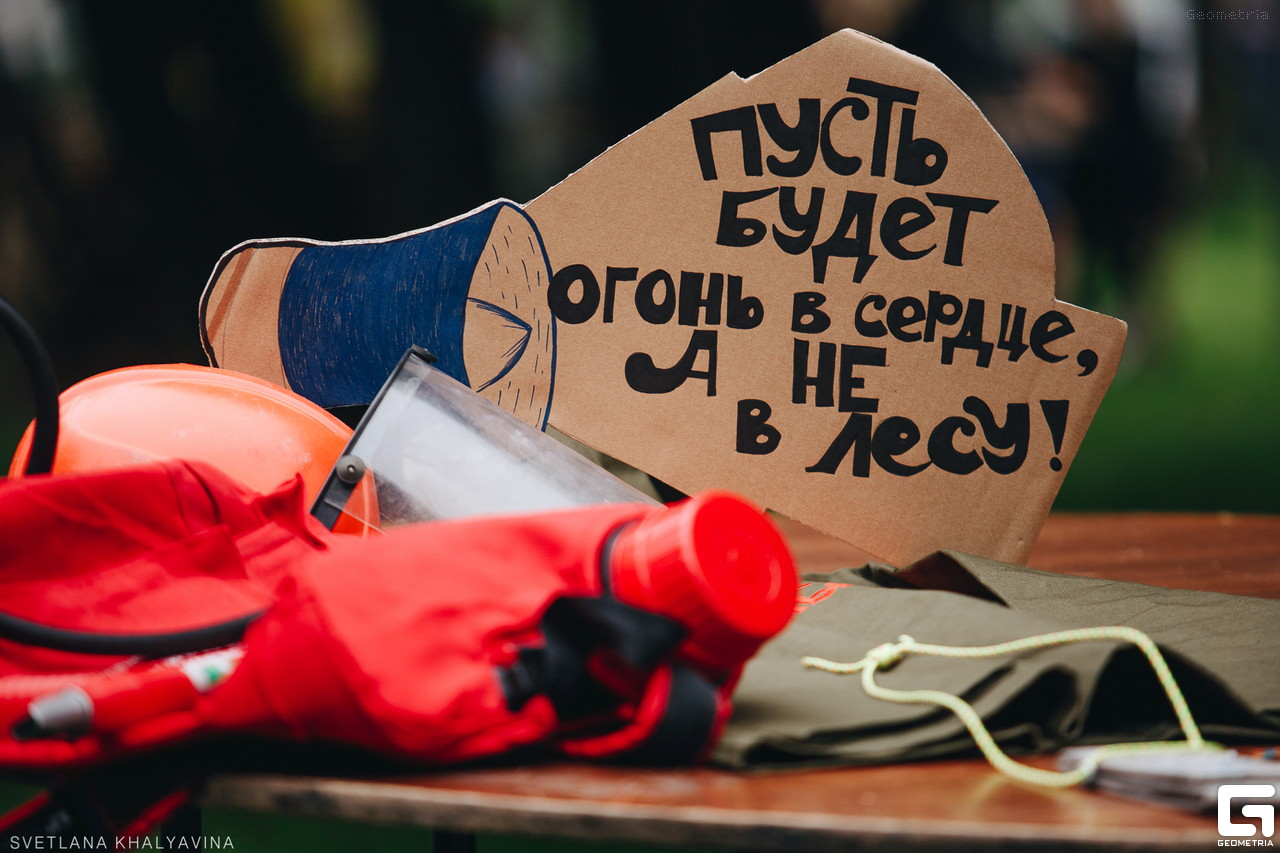 Geometria
ПУСТЬ
БУДЕТ
ОГОНЬ В СЕРДЦЕ,
А НЕ
В ЛЕСУ!
SVETLANA KHALYAVINA
GEOMETRIA